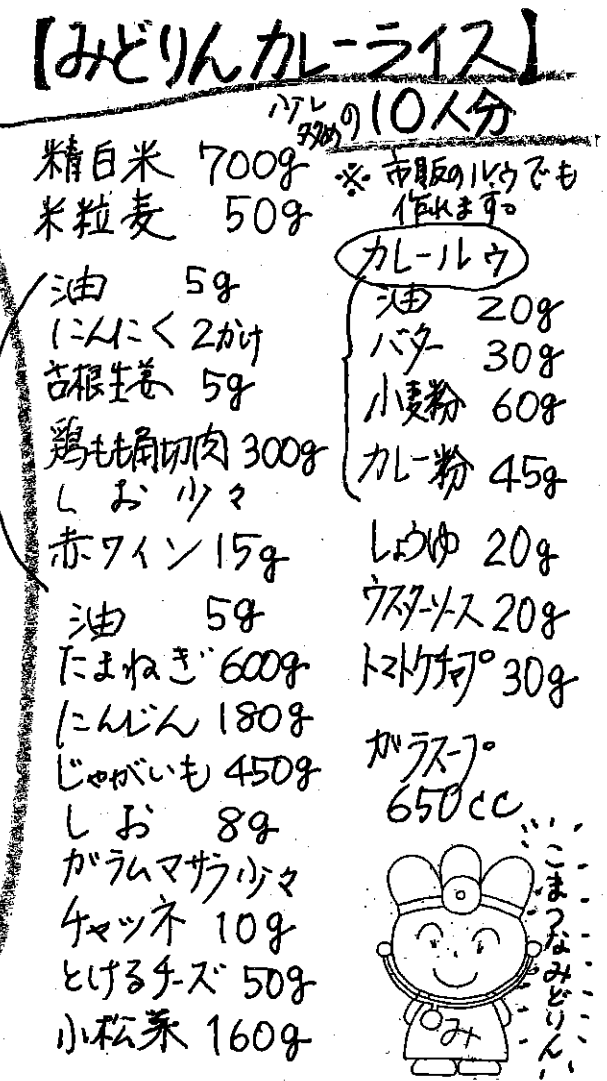 【みどりんカレーライス】
少し多めの10人分
精白米 700g
米粒麦 50g
油 5g
にんにく 2かけ
古根生姜 5g
鶏もも角切肉 300g
しお 少々
赤ワイン 15g
油 5g
たまねぎ 600g
にんじん 180g
じゃがいも 450g
しお 8g
ガラムマサラ 少々
チャツネ 10g
とけるチーズ 50g
小松菜 160g
※市販のルウでも
作れます。
カレールゥ
油 20g
バター 30g
小麦粉 60g
カレー粉 45g
しょうゆ 20g
ウスターソース 20g
トマトケチャップ 30g
ガラスープ
650cc
こまつなみどりん
み